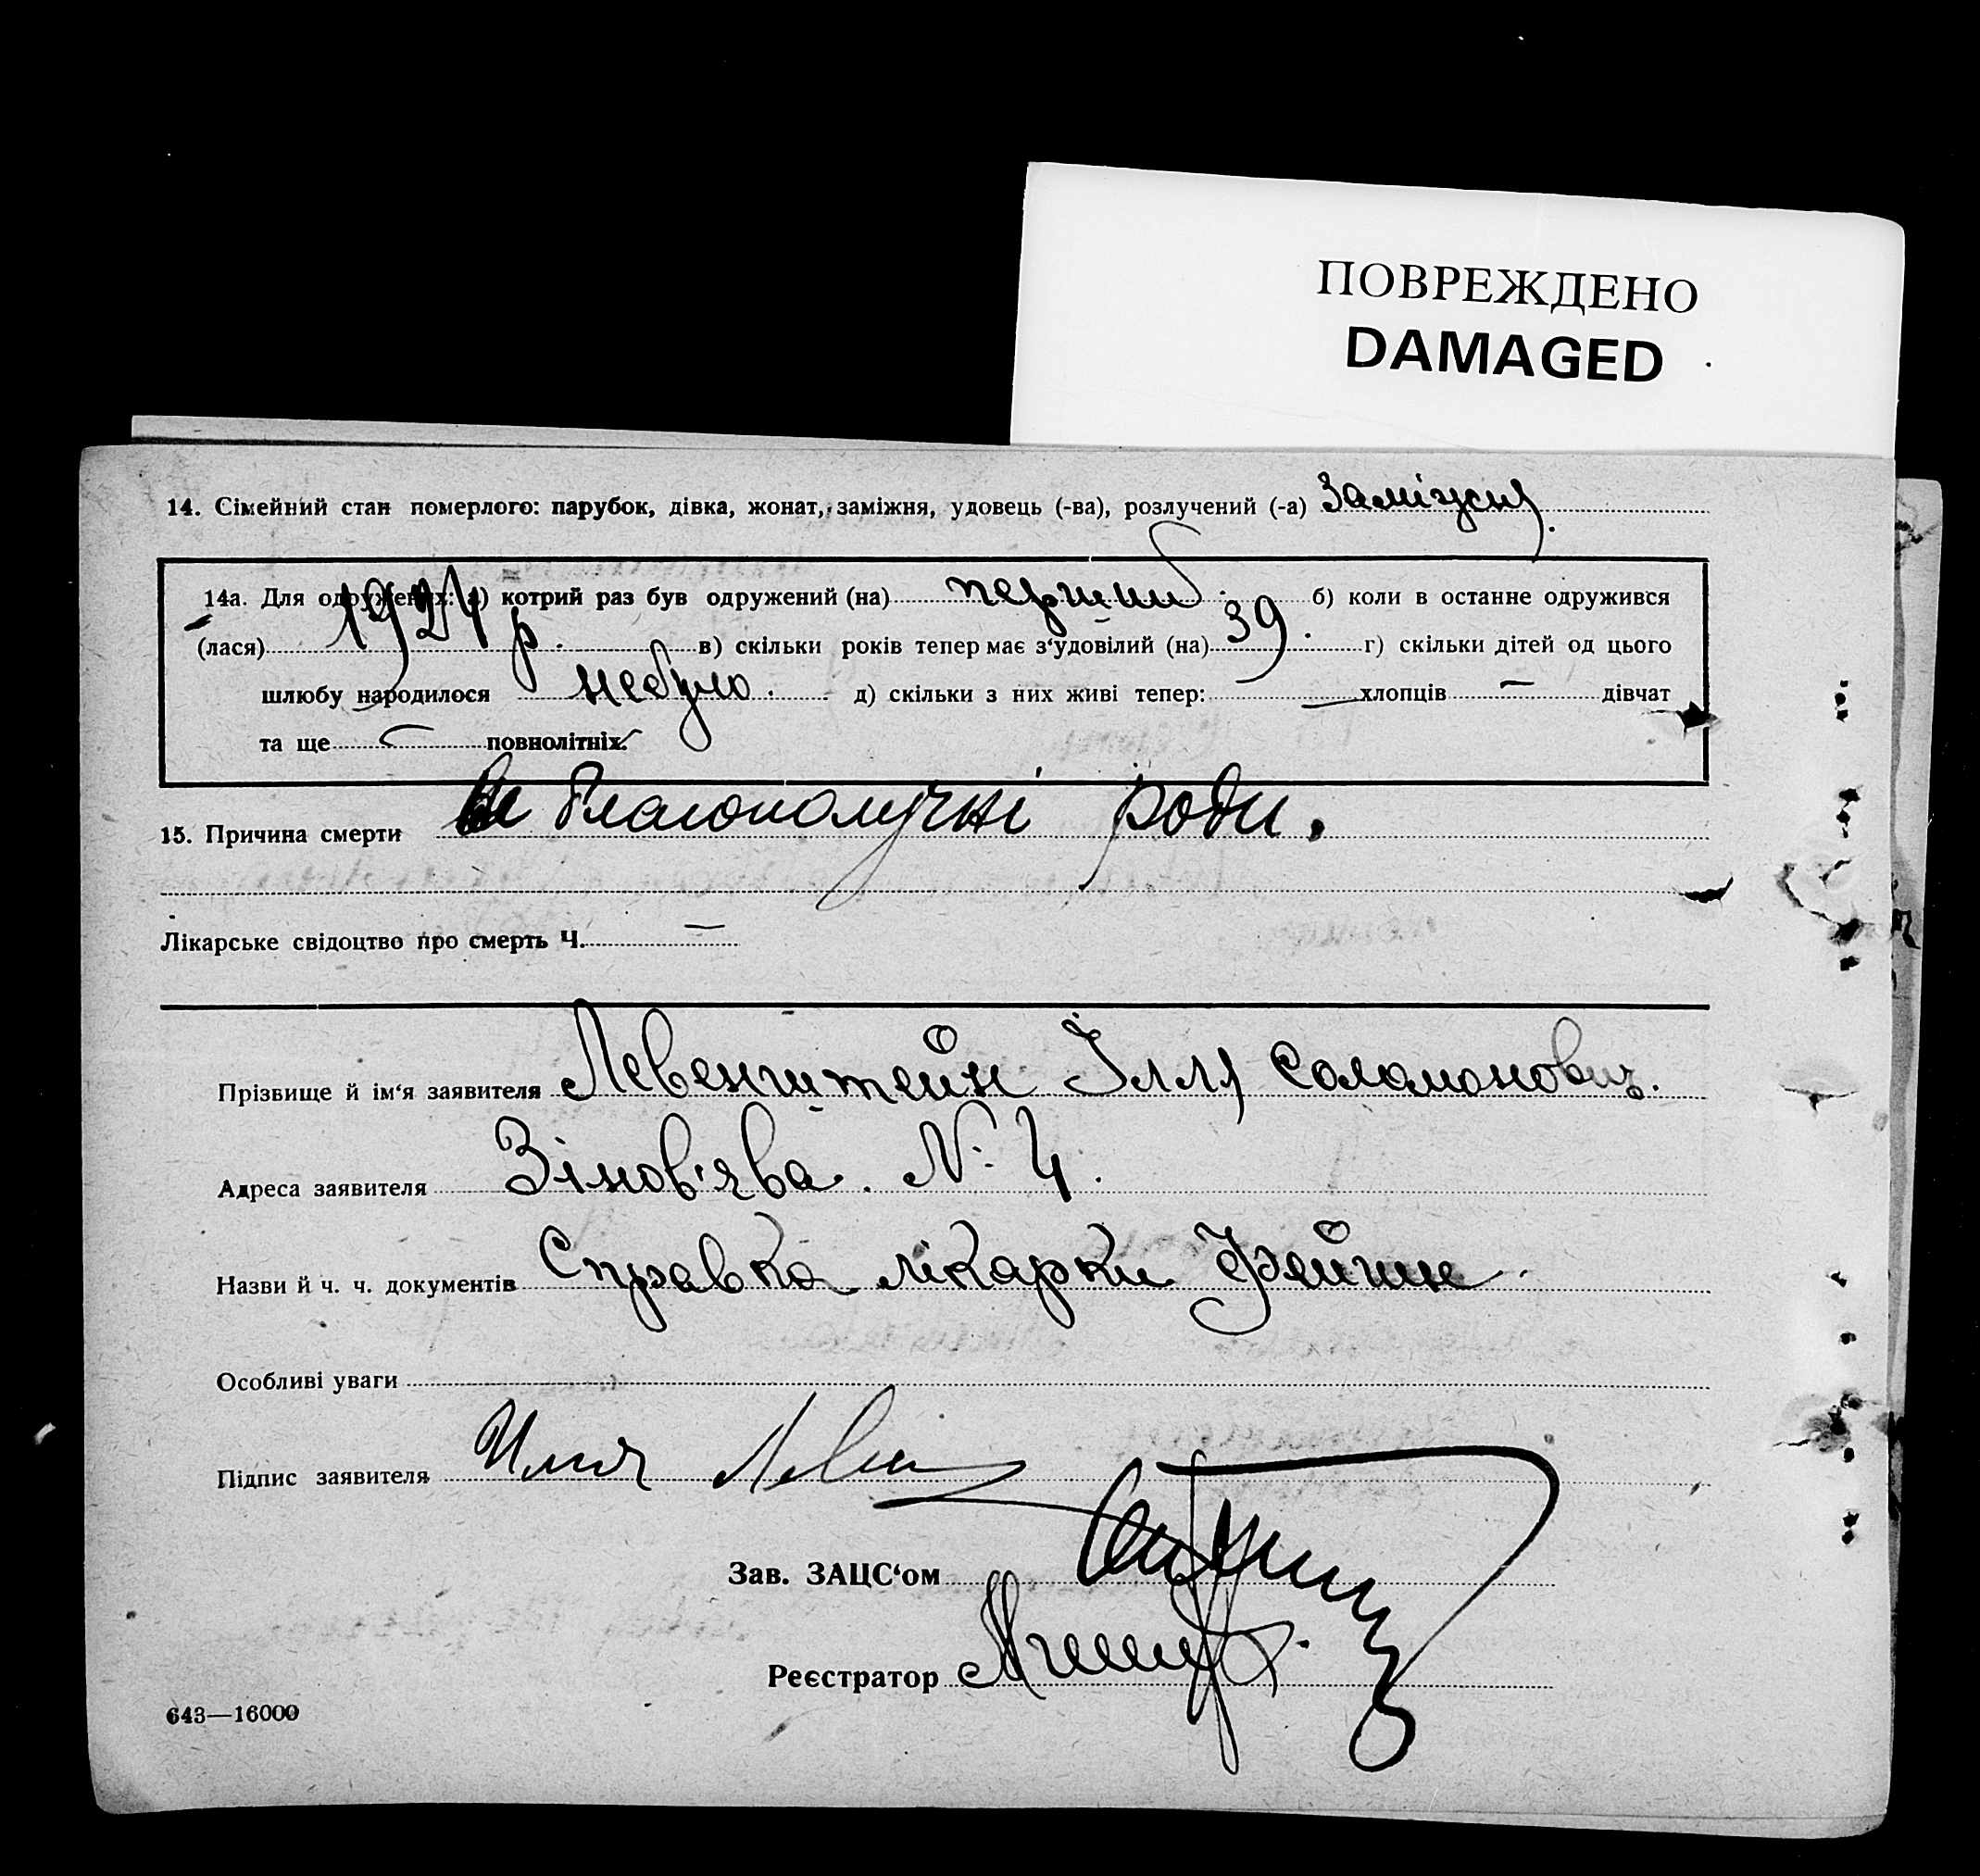 ПОВРЕЖДЕНО
DAMAGED
14. Сімейний стан померлого: парубок, дівка, жонат, заміжня, удовець (-ва), розлучений (-а) Заміжня.
14а. Для одружених: а) котрий раз був одружений (на) перший б) коли в останне одружився
(лася) 1924 р. в) скільки років тепер має з‘удовілий (на) 39. г) скільки дітей од цього
шлюбу народилося небуло. д) скільки з них живі тепер: — хлопців — дівчат
та ще — повнолітніх.
15. Причина смерти Не благополучні роди.
Лікарське свідоцтво про смерть Ч. —
Прізвище й ім‘я заявителя Левенштейн Ілля Соломонович.
Адреса заявителя Зінов'єва. № 4.
Назви й ч. ч. документів Справка лікарки Фейгин.
Особливі уваги
Підпис заявителя Илья
Зав. ЗАЦС‘ом
Реєстратор
643—16000